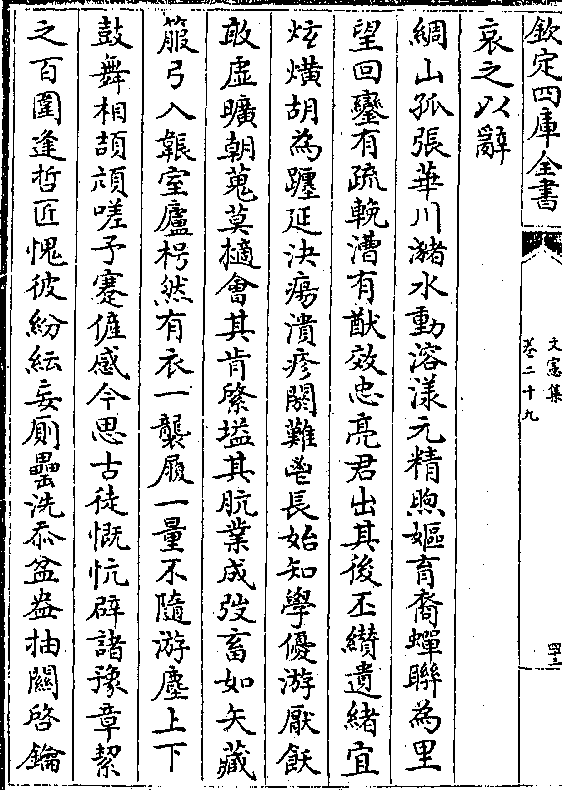 欽定四庫全書
文憲集
卷二十九
四三
哀之以辭
綢山孤張華川瀦水動溶漾元精煦嫗育裔蟬聯為里
望回鑾有疏輓漕有猷效忠亮君出其後丕纘遺緒宜
炫熿胡為躔延決瘍潰疹關難鬯長始知學優游厭飫
敢虛曠朝蒐莫擿會其肯綮搤其肮業成弢畜如矢藏
箙弓入韔室廬枵然有衣一襲履一量不隨游塵上下
鼓舞相頡頏嗟予蹇僱感今思古徒慨忼辟諸豫章絜
之百圍逢哲匠愧彼紛紜妄厠罍洗忝盆盎抽關啓鑰